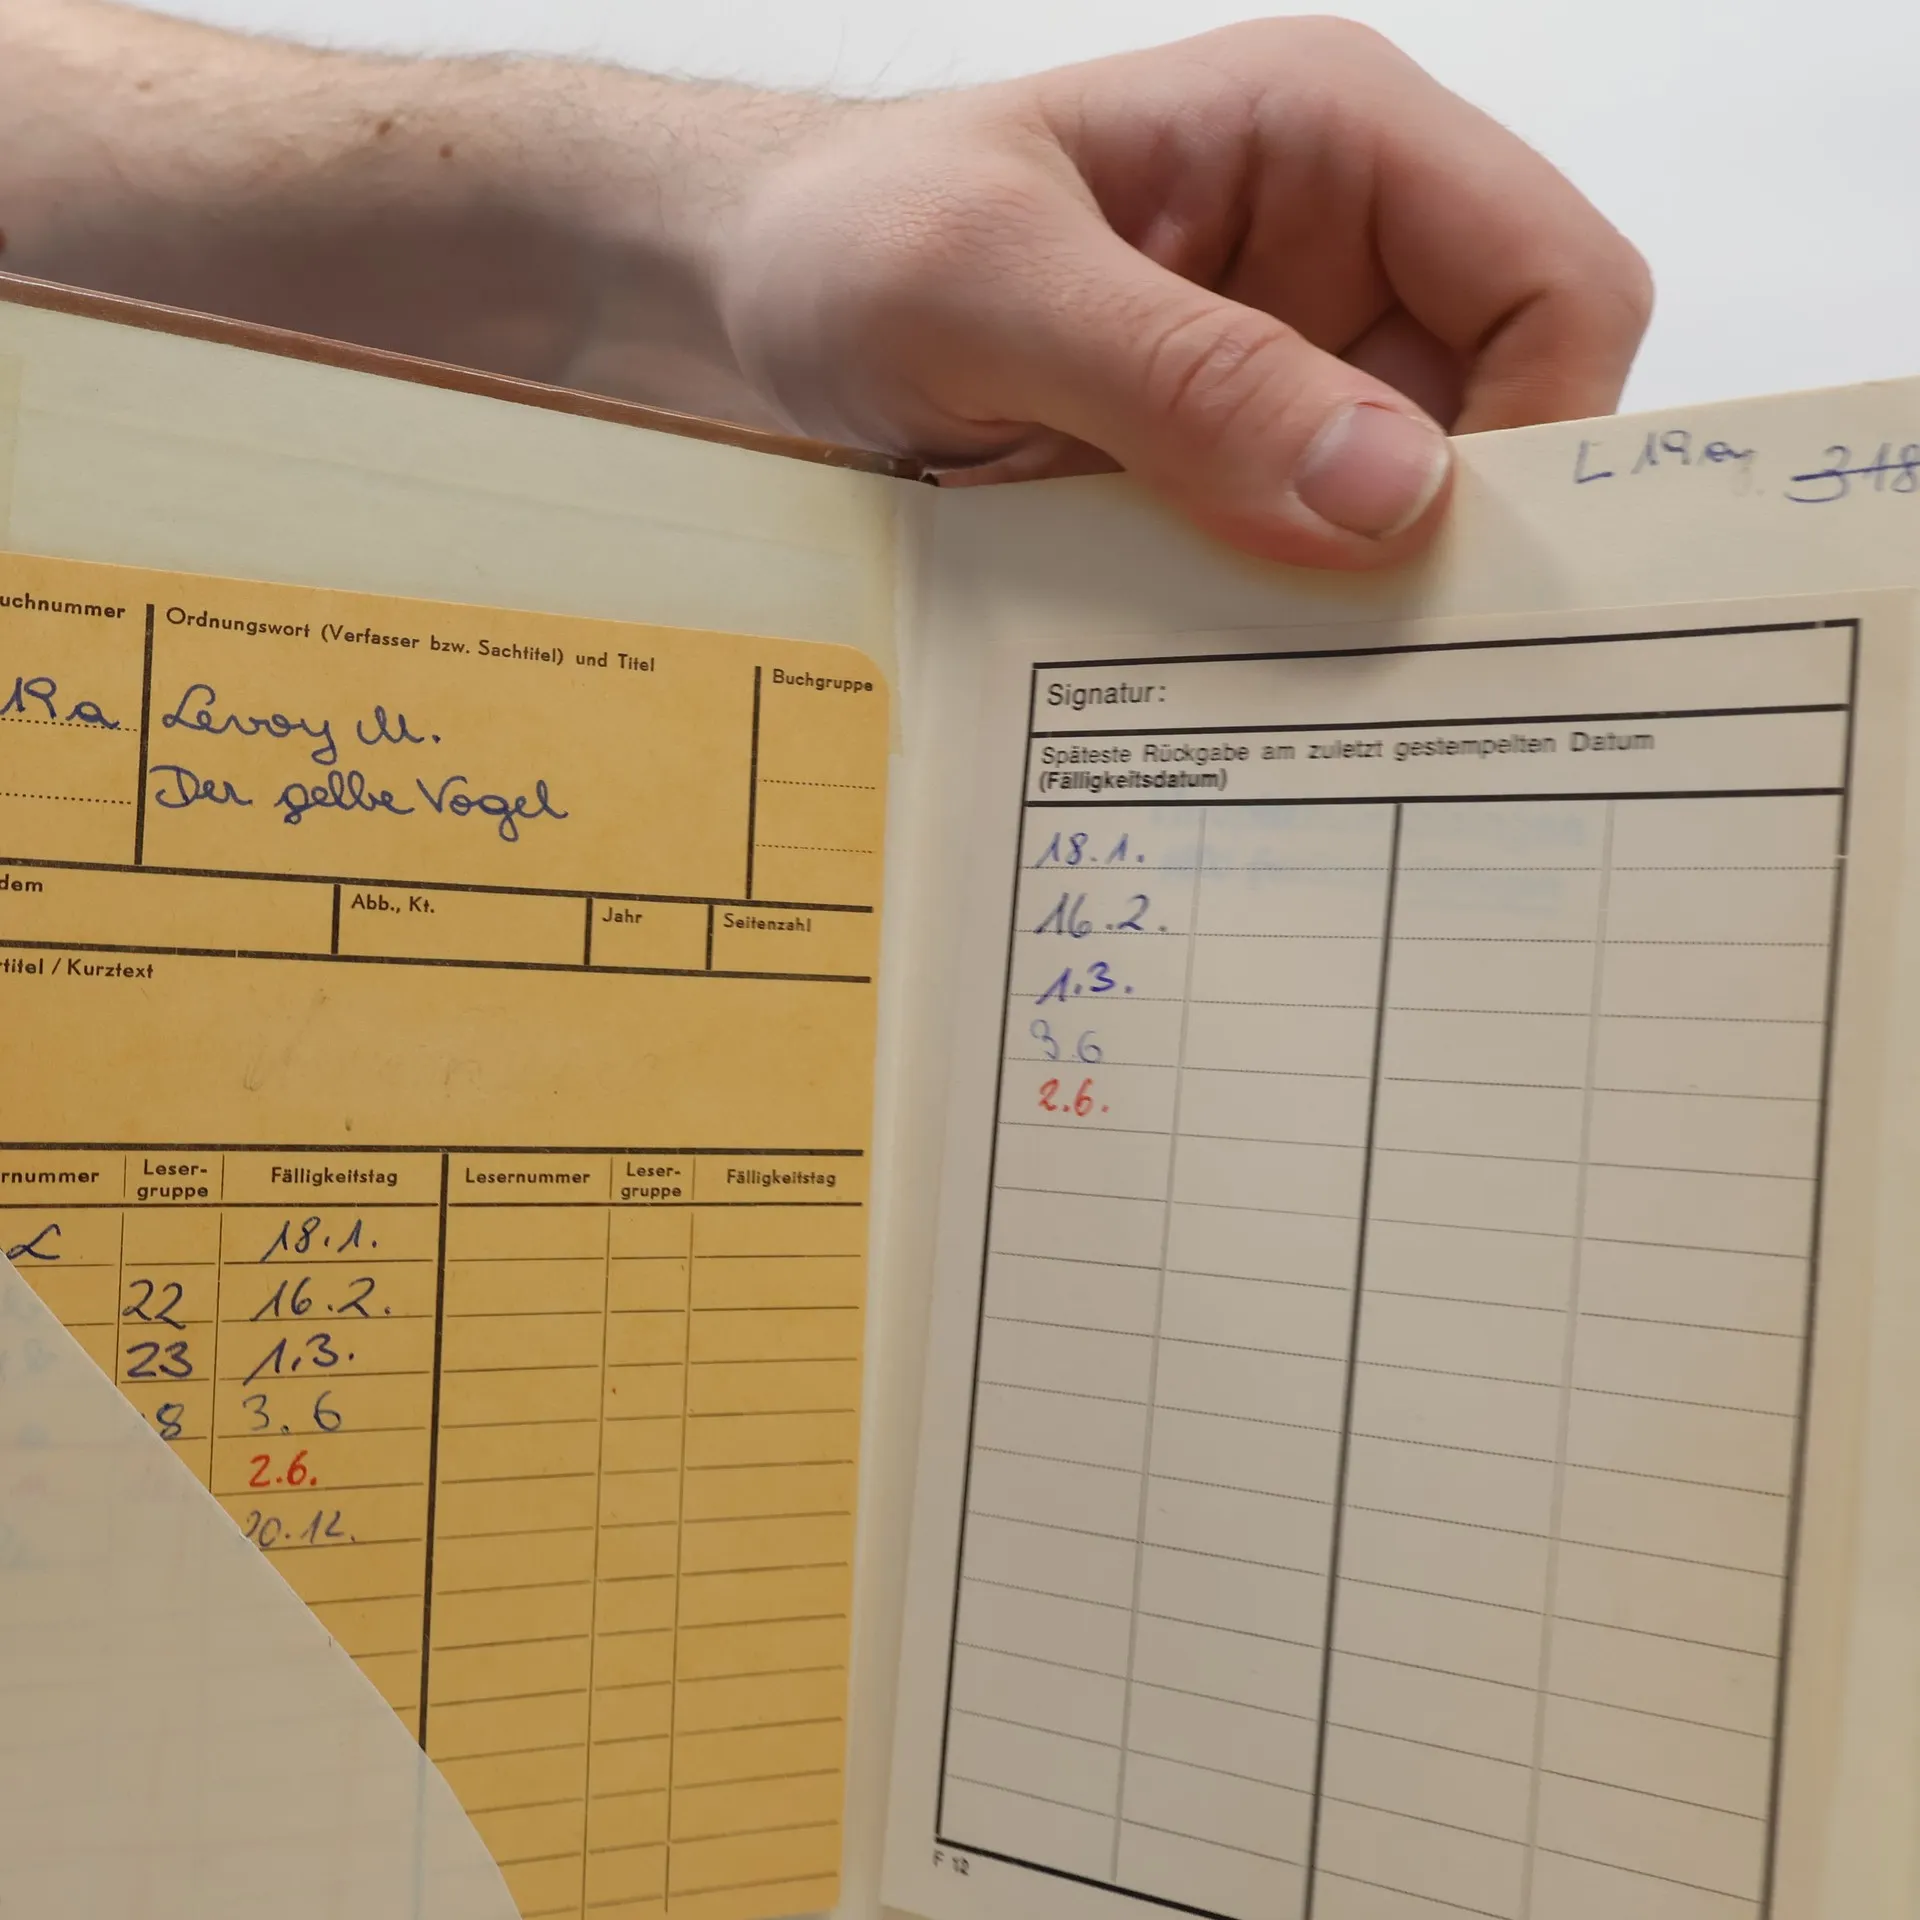 uchnummer
Ordnungswort (Verfasser bzw. Sachtitel) und Titel
Buchgruppe
19a
Levoy M.
Der gelbe Vogel
dem
Abb., Kt.
Jahr
Seitenzahl
titel / Kurztext
rnummer
Leser-
gruppe
Fälligkeitstag
Lesernummer
Leser-
gruppe
Fälligkeitstag
L
18.1.
22
16.2.
23
1.3.
8
3. 6
2.6.
20.12.
L 19a
318
Signatur:
Späteste Rückgabe am zuletzt gestempelten Datum
(Fälligkeitsdatum)
18.1.
16.2.
1.3.
3.6
2.6.
F 12